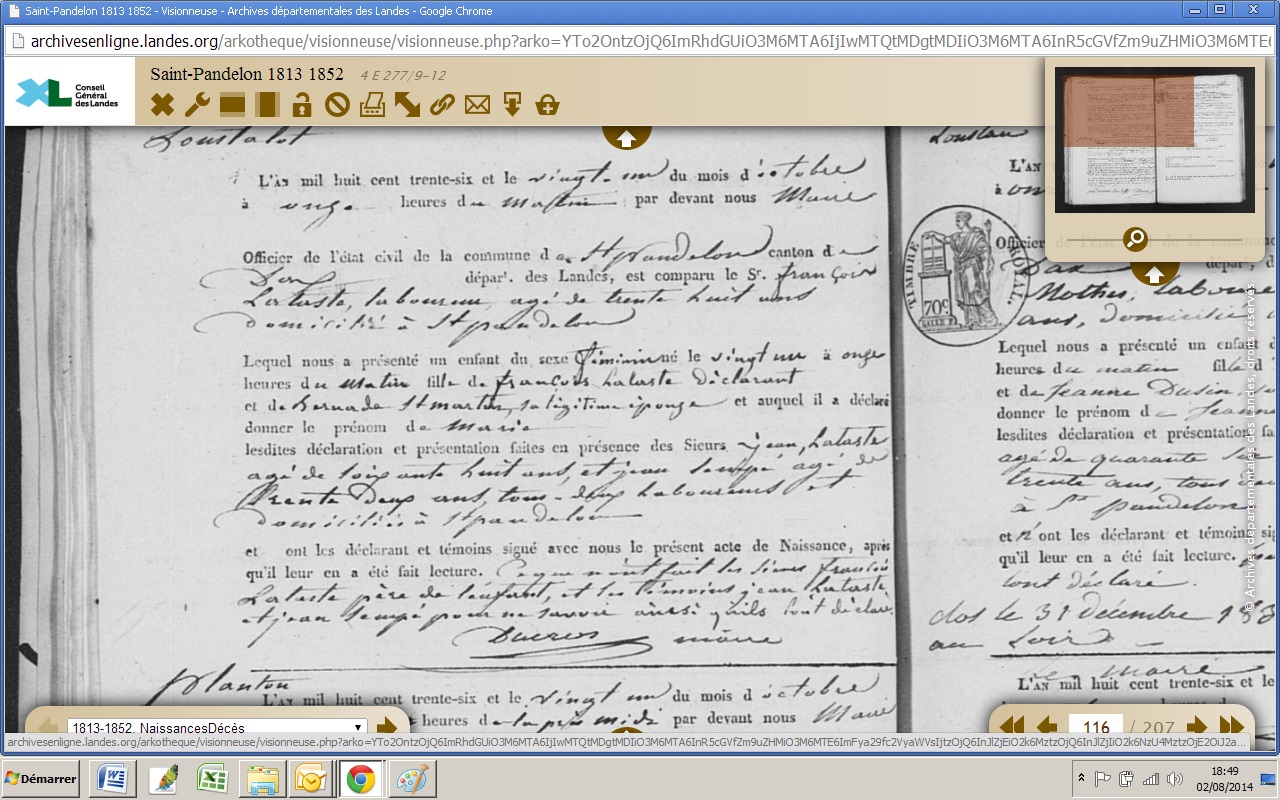 Saint-Pandelon 1813 1852 - Visionneuse - Archives départementales des Landes - Google Chrome
archivesenligne.landes.org/arkotheque/visionneuse/visionneuse.php?arko=YTo2OntzOjQ6ImRhdGUiO3M6MTA6IjIwMTQtMDgtMDIiO3M6MTA6InR5cGVfZm9uZHMiO3M6MTE6
Conseil
Général
des Landes
Saint-Pandelon 1813 1852 4 E 277/9-12
Loustalot
L'AN mil huit cent trente-six et le vingt-un du mois d'octobre
à onze heures du matin par devant nous Maire
Officier de l'état civil de la commune de St pandelon canton de
Dax départ. des Landes, est comparu le Sr. françois
Lataste, laboureur, agé de trente huit ans
domicilié à St pandelon
Lequel nous a présenté un enfant du sexe féminin né le vingt un à onze
heures du matin fille de françois Lataste déclarant
et de Bernade St martin, sa légitime épouze et auquel il a déclaré
donner le prénom de marie
lesdites déclaration et présentation faites en présence des Sieurs jean Lataste
agé de soixante huit ans, et jean Sempé agé de
trente deux ans, tous-deux Laboureurs et
domiciliés à St pandelon
et ont les déclarant et témoins signé avec nous le présent acte de Naissance, après
qu'il leur en a été fait lecture. Ce que n'ont fait les sieurs françois
Lataste père de l'enfant, et les témoins jean Lataste
et jean Sempé pour ne savoir ainsi qu'ils l'ont déclaré.
Ducros maire
Planton
L'AN mil huit cent trente-six et le vingt un du mois d'octobre
heures de la près midi par devant nous Maire
Loustau
L'AN
à
TIMBRE ROYAL.
70c
Officier de l'état civil de la commune
Dax départ. d
Mothes, Laboure
ans, domicilié
Lequel nous a présenté un enfant d
heures du matin fille d
et de Jeanne Dusin,
donner le prénom de Jeanne
lesdites déclaration et présentation fa
agé de quarante six
trente ans, tous
à St pandelon
et n'ont les déclarant et témoins si
qu'il leur en a été fait lecture,
l'ont déclaré.
clos le 31 décembre 183
au Soir
Le maire
L'AN mil huit cent trente-six et le
© Archives départementales des Landes, droits réservés.
1813-1852, NaissancesDécès
116 / 207
archivesenligne.landes.org/arkotheque/visionneuse/visionneuse.php?arko=YTo2OntzOjQ6ImRhdGUiO3M6MTA6IjIwMTQtMDgtMDIiO3M6MTA6InR5cGVfZm9uZHMiO3M6MTE6ImFya29fc2VyaWVsIjtzOjQ6InJlZjEiO2k6MztzOjQ6InJlZjIiO2k6NzU4MztzOjE2OiJ2a...
Démarrer
18:49
02/08/2014